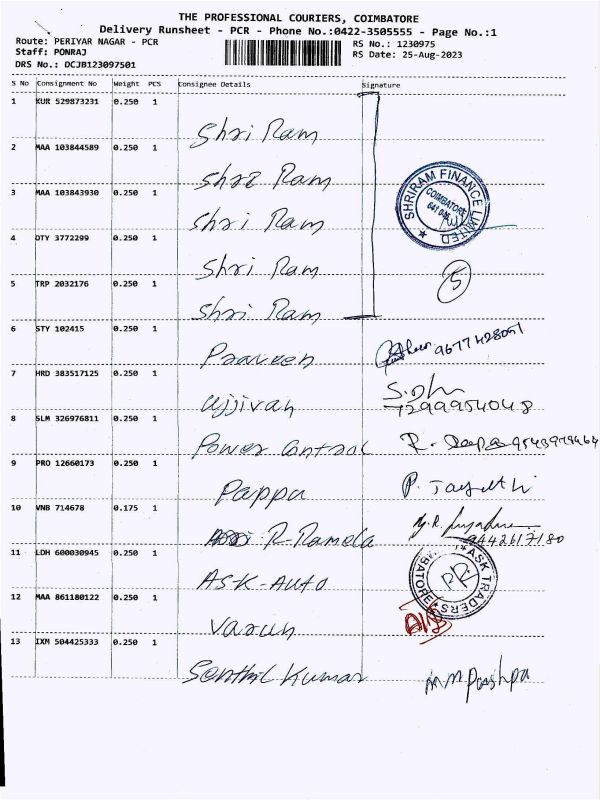 THE PROFESSIONAL COURIERS, COIMBATORE
Delivery Runsheet - PCR - Phone No.:0422-3505555 - Page No.:1
Route: PERIYAR NAGAR - PCR RS No.: 1230975
Staff: PONRAJ RS Date: 25-Aug-2023
DRS No.: DCJB123097501
S No Consignment No Weight PCS Consignee Details Signature
1 KUR 529873231 0.250 1
Shri Ram
2 MAA 103844589 0.250 1
Shri Ram
SHRIRAM FINANCE LIMITED
COIMBATORE
3 MAA 103843930 0.250 1
Shri Ram
4 OTY 3772299 0.250 1
Shri Ram
5
5 TRP 2032176 0.250 1
Shri Ram
6 STY 102415 0.250 1
Praveen 9677428091
7 HRD 383517125 0.250 1
Ujjivan
7299954048
8 SLM 326976811 0.250 1
Power Control R. Deepa 9543979464
9 PRO 12660173 0.250 1
Pappa P. Jayanthi
10 VNB 714678 0.175 1
R-Ramela 9442617180
11 LDH 600030945 0.250 1
ASK-AUTO
ASK TRADERS
12 MAA 861180122 0.250 1
Varun
13 IXM 504425333 0.250 1
Senthil Kumar M Pushpa